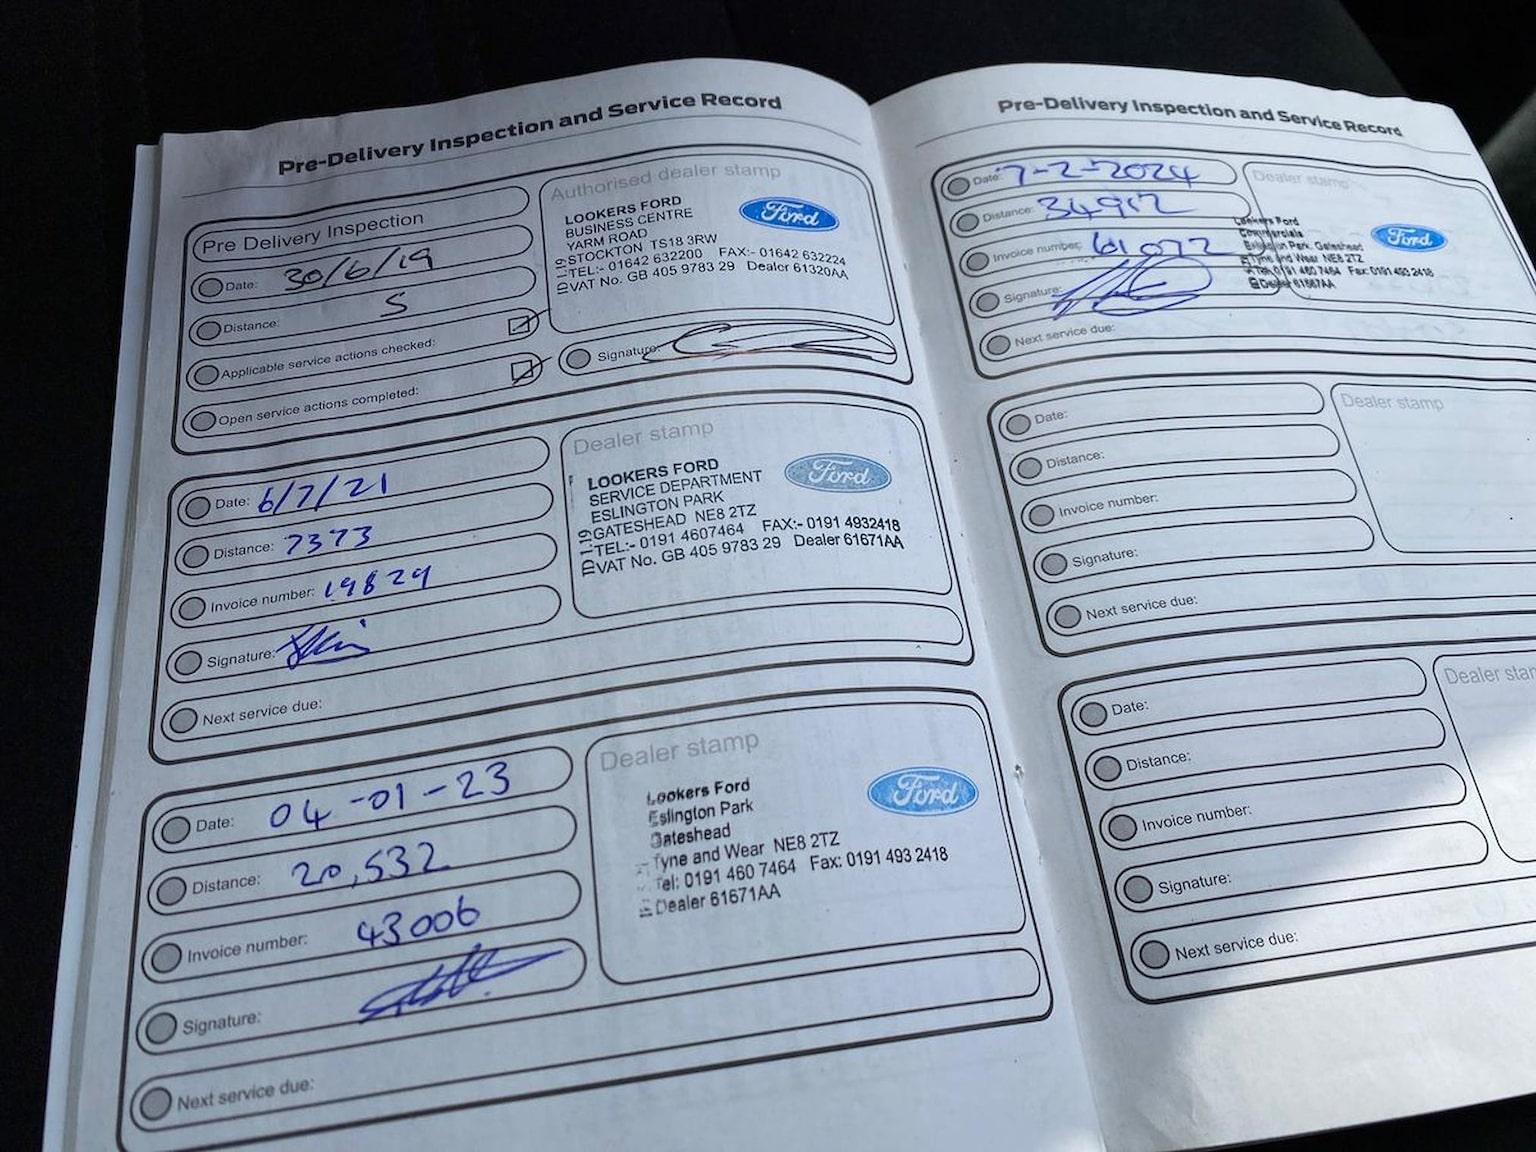 Pre-Delivery Inspection and Service Record
Pre Delivery Inspection
Date: 30/6/19
Distance: 5
Applicable service actions checked:
Open service actions completed:
Authorised dealer stamp
LOOKERS FORD
BUSINESS CENTRE
YARM ROAD
STOCKTON TS18 3RW
TEL:- 01642 632200 FAX:- 01642 632224
VAT No. GB 405 9783 29 Dealer 61320AA
Ford
Signature:
Date: 6/7/21
Distance: 7373
Invoice number: 19829
Signature:
Next service due:
Dealer stamp
LOOKERS FORD
SERVICE DEPARTMENT
ESLINGTON PARK
GATESHEAD NE8 2TZ
TEL:- 0191 4607464 FAX:- 0191 4932418
VAT No. GB 405 9783 29 Dealer 61671AA
Ford
Date: 04-01-23
Distance: 20,532
Invoice number: 43006
Signature:
Next service due:
Dealer stamp
Lookers Ford
Eslington Park
Gateshead
Tyne and Wear NE8 2TZ
Tel: 0191 460 7464 Fax: 0191 493 2418
Dealer 61671AA
Ford
Pre-Delivery Inspection and Service Record
Date: 7-2-2024
Distance: 34912
Invoice number: 61072
Signature:
Next service due:
Dealer stamp
Lookers Ford
Commercials
Eslington Park, Gateshead
Tyne and Wear NE8 2TZ
Tel: 0191 460 7464 Fax: 0191 493 2418
Ford
Date:
Distance:
Invoice number:
Signature:
Next service due:
Dealer stamp
Date:
Distance:
Invoice number:
Signature:
Next service due:
Dealer